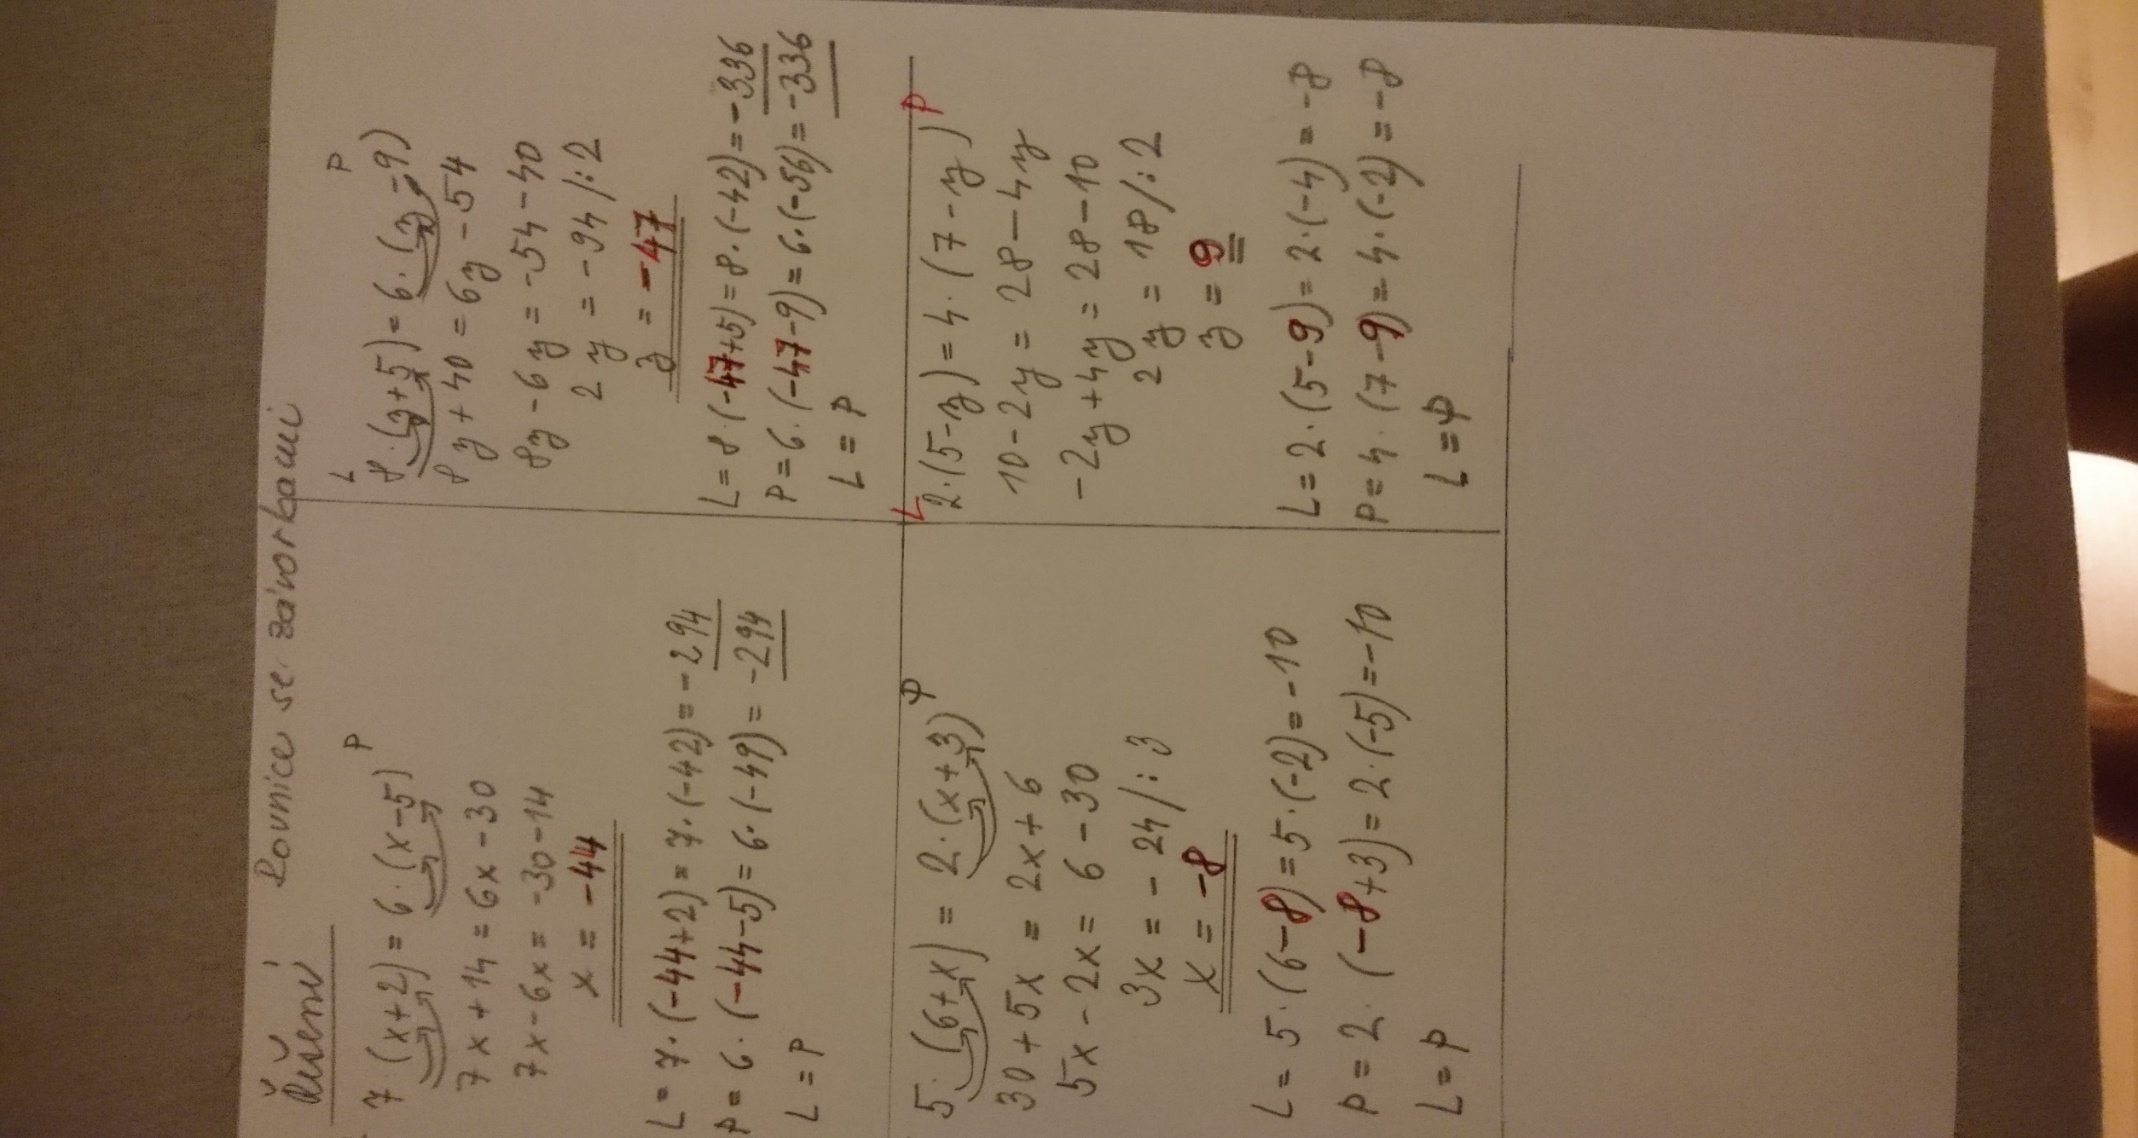 Řešení Rovnice se závorkami
L P
7·(x+2) = 6·(x-5)
7x + 14 = 6x - 30
7x - 6x = -30 - 14
x = -44
L = 7·(-44+2) = 7·(-42) = -294
P = 6·(-44-5) = 6·(-49) = -294
L = P
L P
8·(y+5) = 6·(y-9)
8y + 40 = 6y - 54
8y - 6y = -54 - 40
2y = -94 /:2
y = -47
L = 8·(-47+5) = 8·(-42) = -336
P = 6·(-47-9) = 6·(-56) = -336
L = P
P
5·(6+x) = 2·(x+3)
30 + 5x = 2x + 6
5x - 2x = 6 - 30
3x = -24 /:3
x = -8
L = 5·(6-8) = 5·(-2) = -10
P = 2·(-8+3) = 2·(-5) = -10
L = P
L P
2·(5-y) = 4·(7-y)
10 - 2y = 28 - 4y
-2y + 4y = 28 - 10
2y = 18 /:2
y = 9
L = 2·(5-9) = 2·(-4) = -8
P = 4·(7-9) = 4·(-2) = -8
L = P